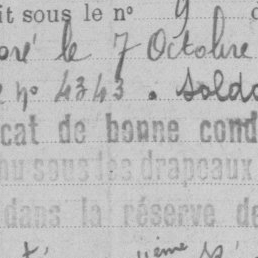 it sous le n° 9
oré le 7 Octobre
e n° 4343. Solda
cat de bonne cond
nu sous les drapeaux
dans la réserve de
ième